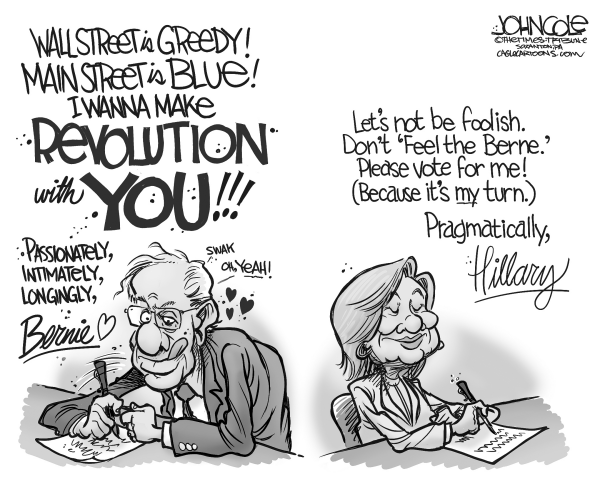 WALL STREET is GREEDY!
MAIN STREET is BLUE!
I WANNA MAKE
REVOLUTION
with YOU!!!
PASSIONATELY,
INTIMATELY,
LONGINGLY,
Bernie
SWAK
OH, YEAH!
JOHN COLE
©THE TIMES-TRIBUNE
SCRANTON, PA
CAGLECARTOONS.COM
Let's not be foolish.
Don't 'Feel the Berne.'
Please vote for me!
(Because it's my turn.)
Pragmatically,
Hillary